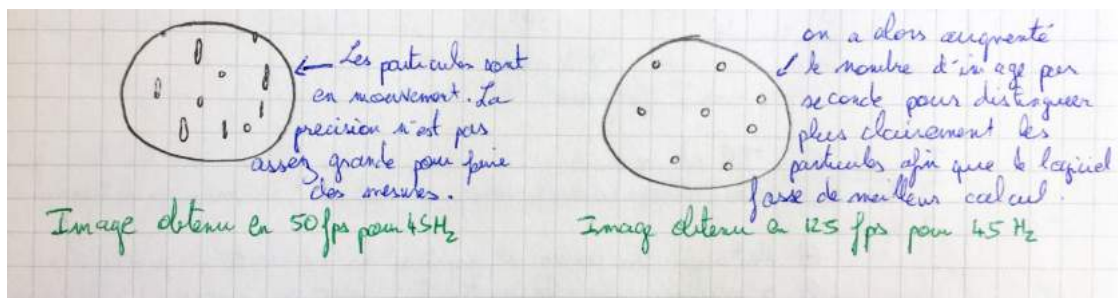 Les particules sont
en mouvement. La
precision n'est pas
assez grande pour faire
des mesures.
Image obtenu en 50 fps pour 45Hz
on a alors augmenté
le nombre d'image par
seconde pour distinguer
plus clairement les
particules afin que le logiciel
fasse de meilleur calcul.
Image obtenu en 125 fps pour 45 Hz